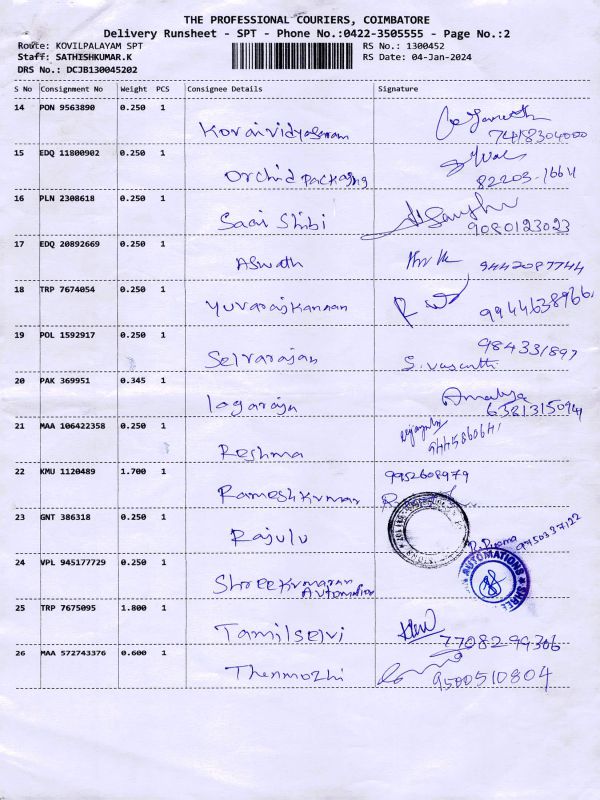 THE PROFESSIONAL COURIERS, COIMBATORE
Delivery Runsheet - SPT - Phone No.:0422-3505555 - Page No.:2
Route: KOVILPALAYAM SPT RS No.: 1300452
Staff: SATHISHKUMAR.K RS Date: 04-Jan-2024
DRS No.: DCJB130045202
S No Consignment No Weight PCS Consignee Details Signature
14 PON 9563890 0.250 1
Kovaividyasram 7418304000
15 EDQ 11800902 0.250 1
Orchid packaging 82203-1664
16 PLN 2308618 0.250 1
Saai Shibi 9080123023
17 EDQ 20892669 0.250 1
Aswath 9442087744
18 TRP 7674054 0.250 1
Yuvarajkannan 9944638966
19 POL 1592917 0.250 1 984331897
Selvarajan S. Vasanthi
20 PAK 369951 0.345 1 Amalya
logaraja 63813150941
21 MAA 106422358 0.250 1
Reshma 9445860641
22 KMU 1120489 1.700 1 9952608979
Rameshkumar
23 GNT 386318 0.250 1
Rajulu R. Prema 9750337122
24 VPL 945177729 0.250 1 AUTOMATIONS SHREE
Shreekumaran
Automation
25 TRP 7675095 1.800 1
Tamilselvi 7708299306
26 MAA 572743376 0.600 1
Thenmozhi 9500510804